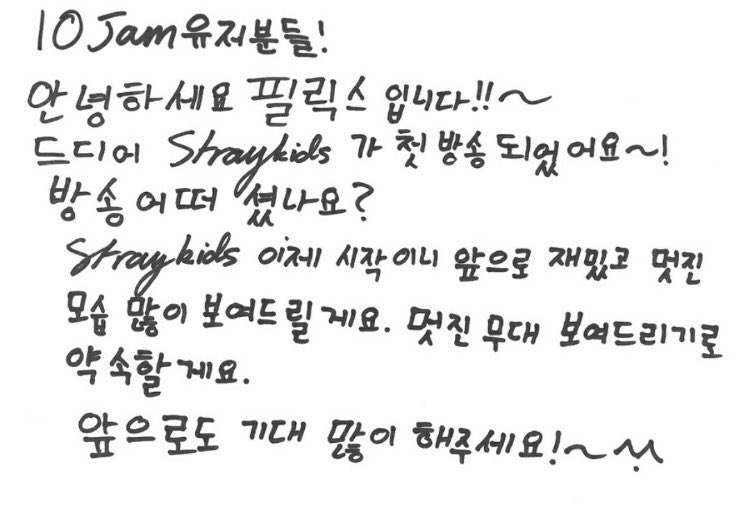 10Jam유저분들!
안녕하세요 필릭스 입니다!!~
드디어 Straykids 가 첫 방송 되었어요~!
방송 어떠 셨나요?
Straykids 이제 시작이니 앞으로 재밌고 멋진
모습 많이 보여드릴게요. 멋진 무대 보여드리기로
약속할게요.
앞으로도 기대 많이 해주세요!~ ^^